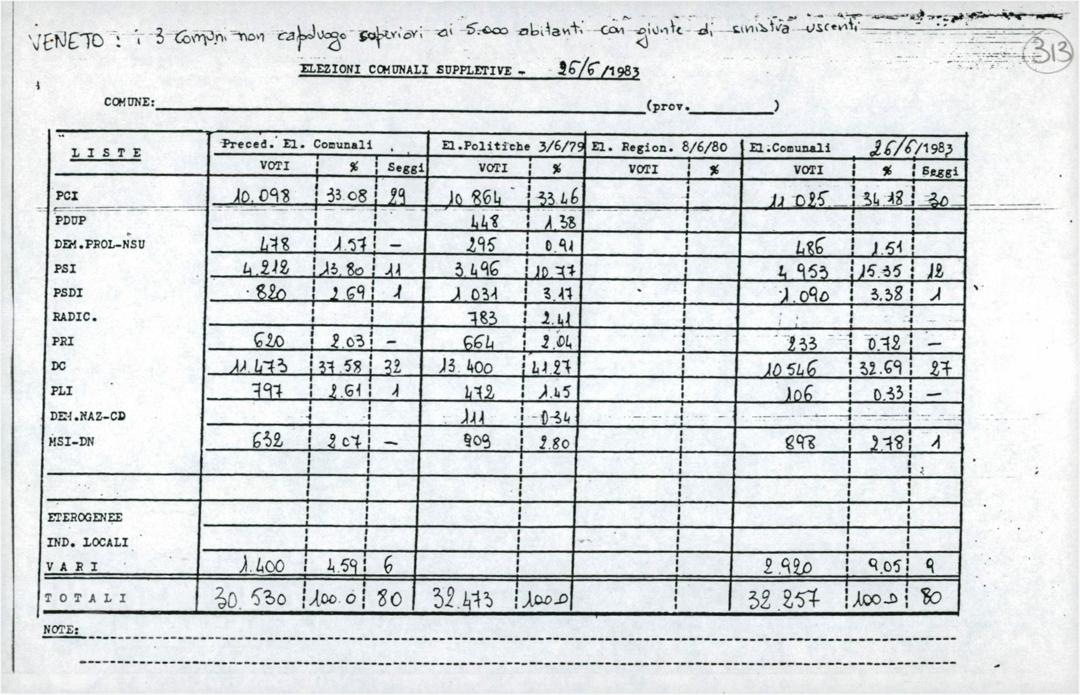 VENETO : i 3 Comuni non capoluogo superiori ai 5.000 abitanti con giunte di sinistra uscenti
313
ELEZIONI COMUNALI SUPPLETIVE - 26/6/1983
COMUNE: (prov. )
LISTE Preced. El. Comunali El.Politiche 3/6/79 El. Region. 8/6/80 El.Comunali 26/6/1983
VOTI % Seggi VOTI % VOTI % VOTI % Seggi
PCI 10.098 33.08 29 10 864 33.46 11 025 34.18 30
PDUP 448 1.38
DEM.PROL-NSU 478 1.57 - 295 0.91 486 1.51
PSI 4.212 13.80 11 3.496 10.77 4 953 15.35 12
PSDI 820 2.69 1 1.031 3.17 1.090 3.38 1
RADIC. 783 2.41
PRI 620 2.03 - 664 2.04 233 0.72 -
DC 11.473 37.58 32 13.400 41.27 10 546 32.69 27
PLI 797 2.61 1 472 1.45 106 0.33 -
DEM.NAZ-CD 111 0.34
MSI-DN 632 2.07 - 909 2.80 898 2.78 1
ETEROGENEE
IND. LOCALI
VARI 1.400 4.59 6 2.920 9.05 9
TOTALI 30.530 100.0 80 32.473 100.0 32.257 100.0 80
NOTE: